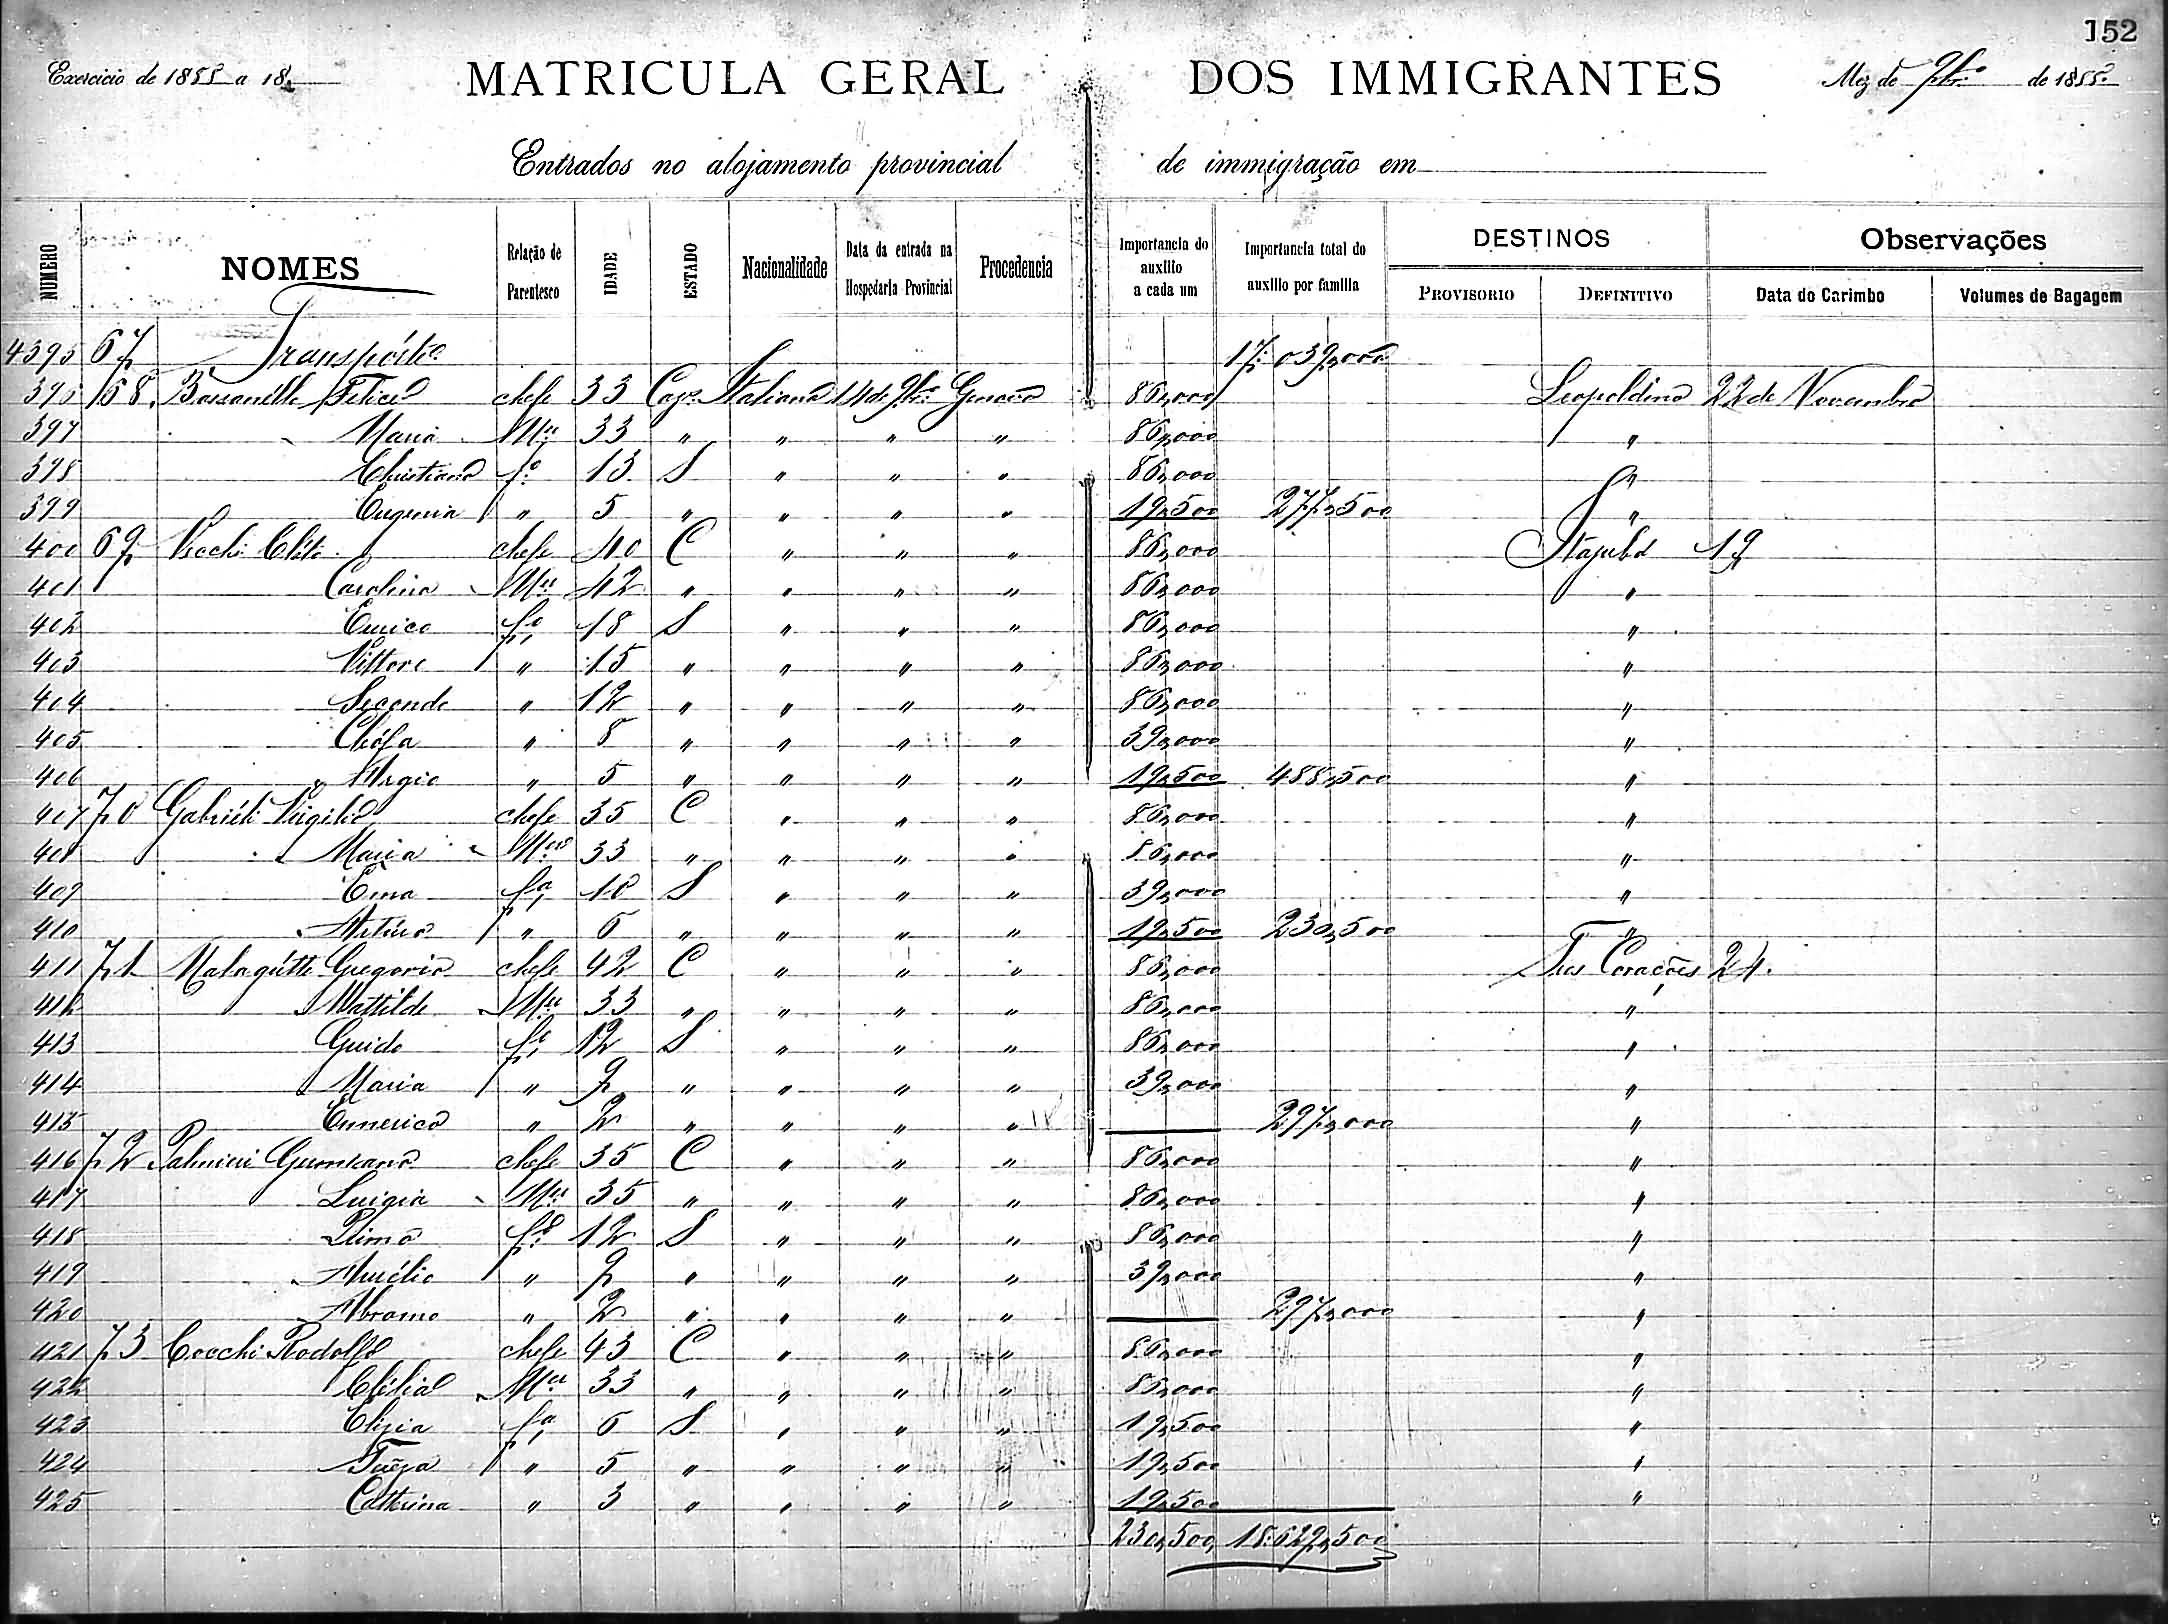 152
Exercicio de 1888 a 18
MATRICULA GERAL DOS IMMIGRANTES
Mez de 9bro de 1888
Entrados no alojamento provincial de immigração em
NUMERO NOMES Relação de Parentesco IDADE ESTADO Nacionalidade Data da entrada na Hospedaria Provincial Procedencia Importancia do auxilio a cada um Importancia total do auxilio por familia DESTINOS PROVISORIO DEFINITIVO Observações Data do Carimbo Volumes de Bagagem
4395 67 Transpórte 17:039,000
396 68 Felice chefe 33 Cazo Italiana 14 de 9bro Genova 86,000 Leopoldina 22 de Novembro
397 Maria Mer 33 " " " " 86,000 "
398 Christiano fo 13 S " " " 86,000 "
399 Eugenia " 5 " " " " 19,500 277,500 "
400 69 Vecchi chefe 40 C " " " 86,000 Itajubá 19
401 Carolina Mer 42 " " " " 86,000 "
402 Enrico fo 18 S " " " 86,000 "
403 Vittore " 15 " " " " 86,000 "
404 Secondo " 12 " " " " 86,000 "
405 " 8 " " " " 39,000 "
406 " 5 " " " " 19,500 488,500 "
407 70 Gabriéli Virgilio chefe 35 C " " " 86,000 "
408 Maria Mer 33 " " " " 86,000 "
409 Ema fa 10 S " " " 39,000 "
410 " 6 " " " " 19,500 230,500 "
411 71 Malagútti Gregorio chefe 42 C " " " 86,000 Tres Corações 24.
412 Mattilde Mer 33 " " " " 86,000 "
413 Guido fo 12 S " " " 86,000 "
414 Maria " 9 " " " " 39,000 "
415 Ennerico " 2 " " " " 297,000 "
416 72 Palmieri chefe 35 C " " " 86,000 "
417 Luigia Mer 35 " " " " 86,000 "
418 Primo fo 12 S " " " 86,000 "
419 Aurélio " 9 " " " " 39,000 "
420 Abramo " 2 " " " " 297,000 "
421 73 Cocchi Rodolfo chefe 43 C " " " 86,000 "
422 Clélia Mer 33 " " " " 86,000 "
423 fa 6 S " " " 19,500 "
424 " 5 " " " " 19,500 "
425 Catterina " 3 " " " " 19,500 "
230,500 18:629,500